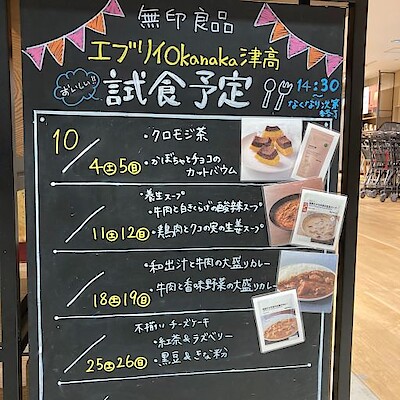 無印良品
エブリイOkanaka津高
おいしい!!
試食予定
14:30
〜
なくなり次第
終了
10
・クロモジ茶
4(土)5(日)
・かぼちゃとチョコの
カットバウム
養生スープ
・牛肉と白きくらげの酸辣スープ
11(土)12(日)
・鶏肉とクコの実の生姜スープ
・和出汁と牛肉の大盛りカレー
18(土)19(日)
・牛肉と香味野菜の大盛りカレー
不揃い チーズケーキ
・紅茶&ラズベリー
25(土)26(日)
・黒豆&きな粉